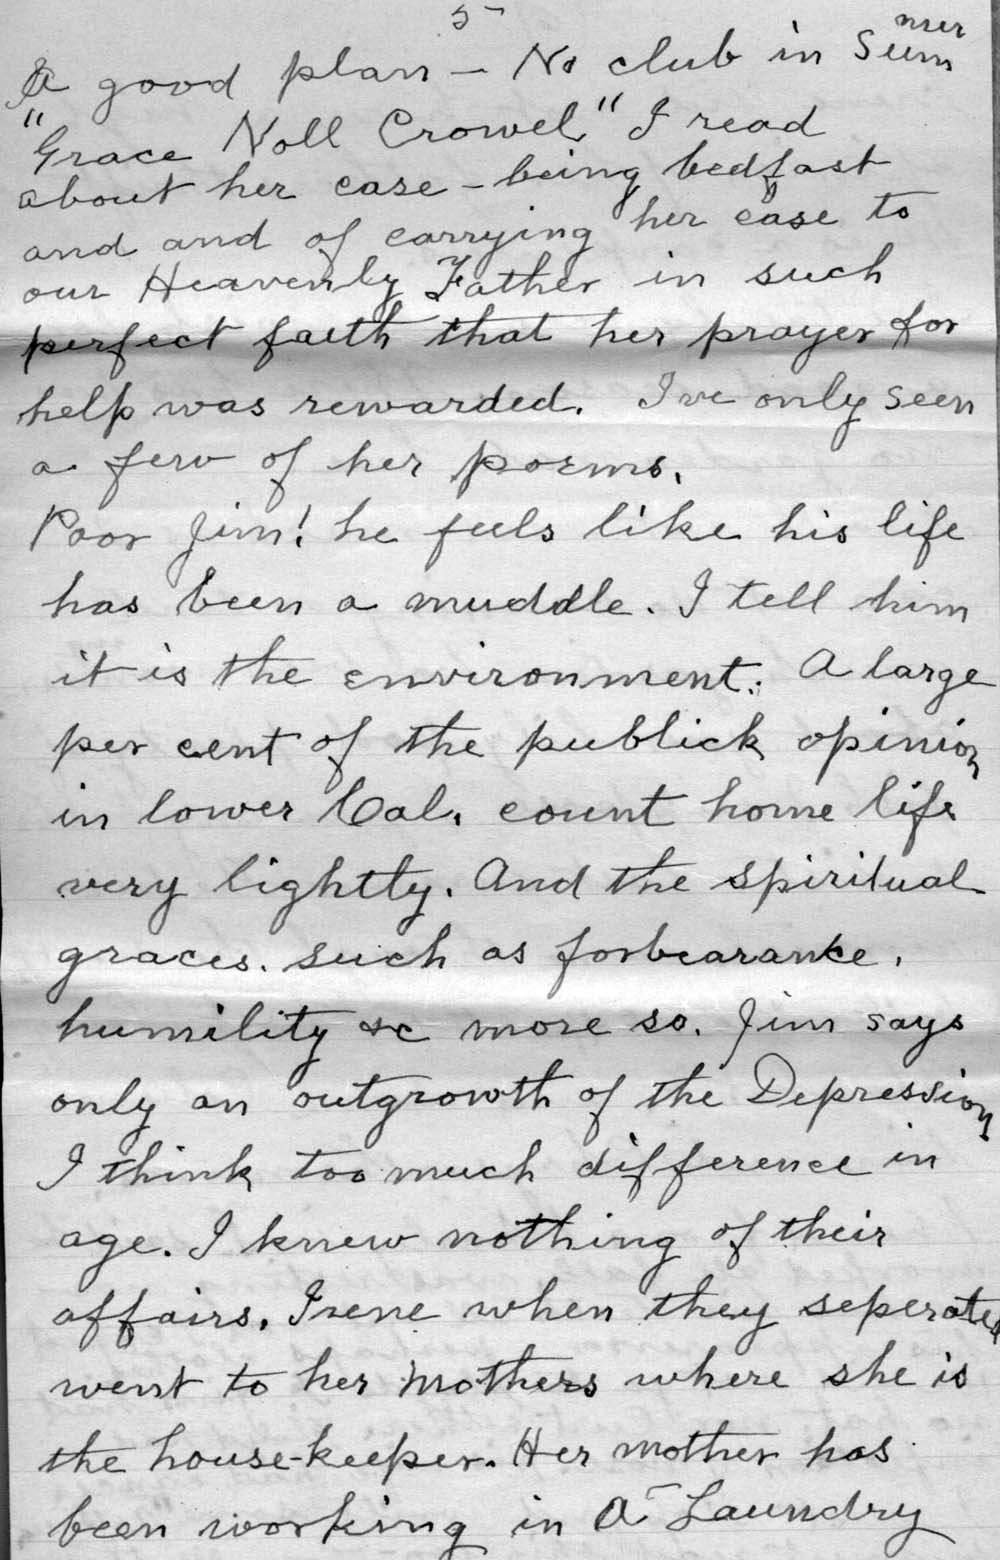 5
A good plan – No club in Summer
"Grace Noll Crowel" I read
about her case – being bedfast
and and of carrying her case to
our Heavenly Father in such
perfect faith that her prayer for
help was rewarded. I've only seen
a few of her poems.
Poor Jim! he feels like his life
has been a muddle. I tell him
it is the environment. A large
per cent of the publick opinion
in lower Cal. count home life
very lightly. And the spiritual
graces. such as forbearance,
humility &c more so. Jim says
only an outgrowth of the Depression
I think too much difference in
age. I knew nothing of their
affairs. Irene when they seperated
went to her mothers where she is
the house-keeper. Her mother has
been working in a Laundry